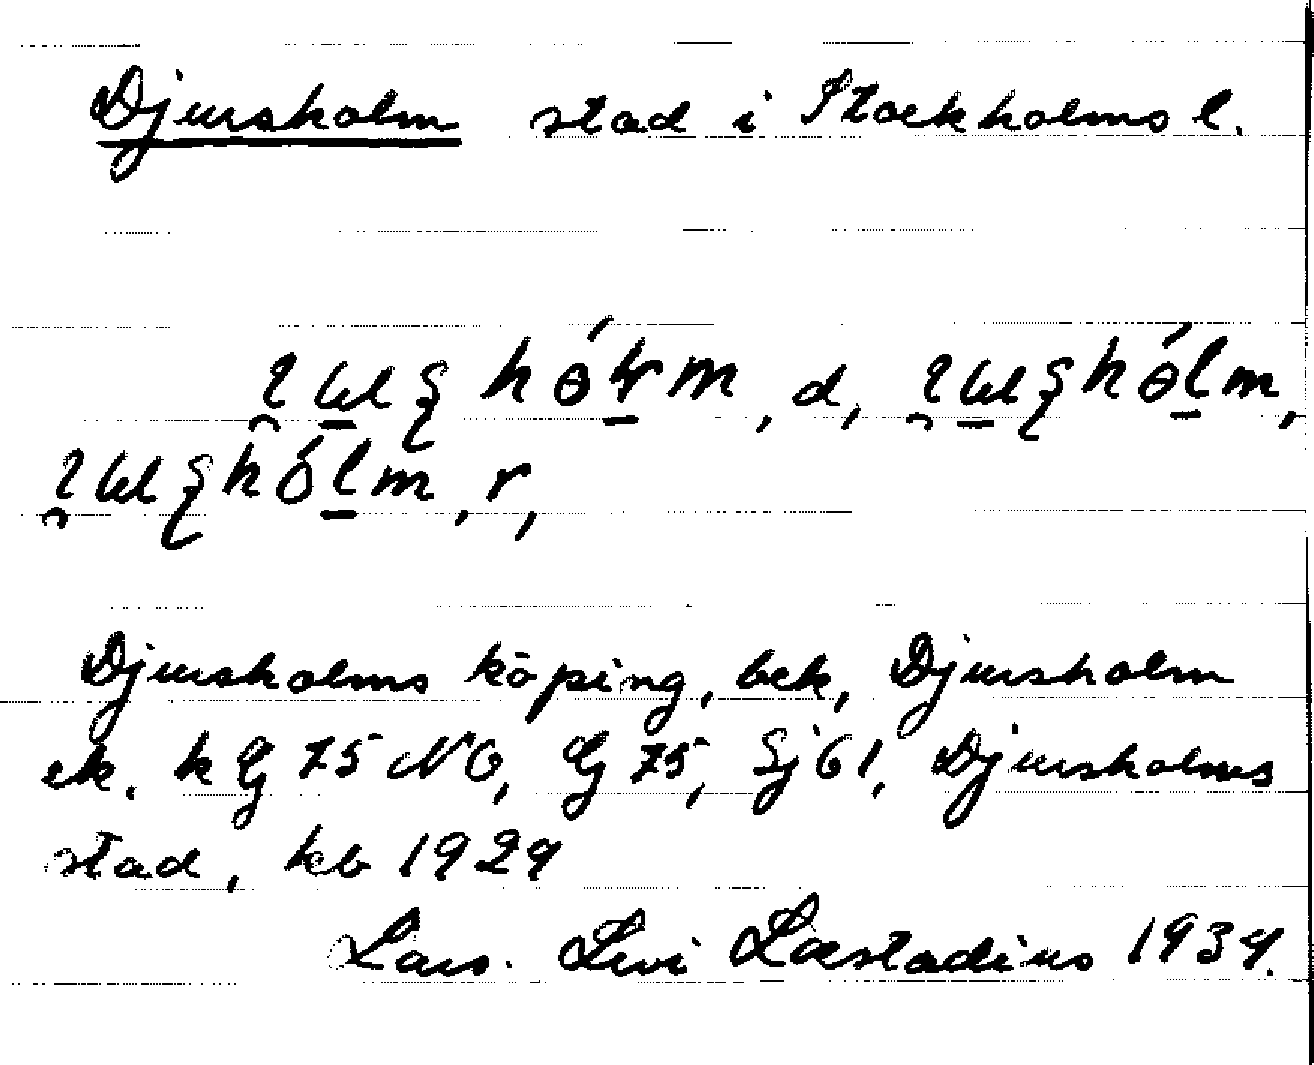 Djursholm stad i Stockholms l.
, d,
, r,
Djursholms köping, bek, Djursholm
ek. k G 75 NO, G 75, Sj 61, Djursholms
stad, kb 1929
Lars. Levi Læstadius 1934.